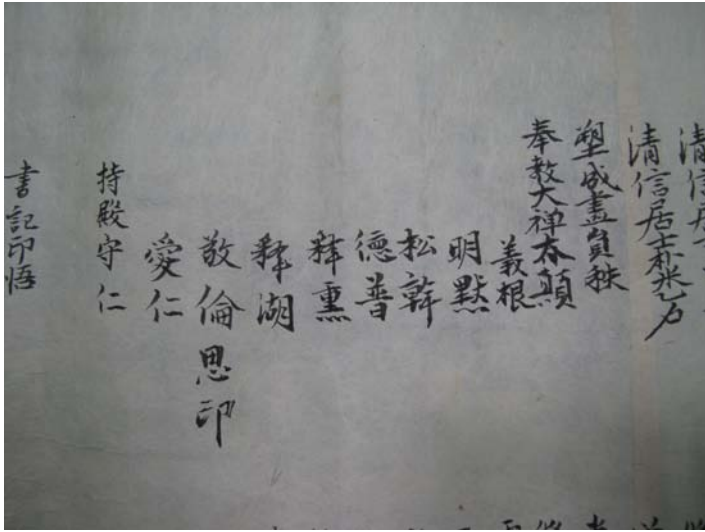 清信居士
清信居士朴
塑成畫員秩
奉教大禅太顛
義根
明黙
松幹
德普
釋熏
釋湖
敬倫思印
愛仁
持殿守仁
書記印悟